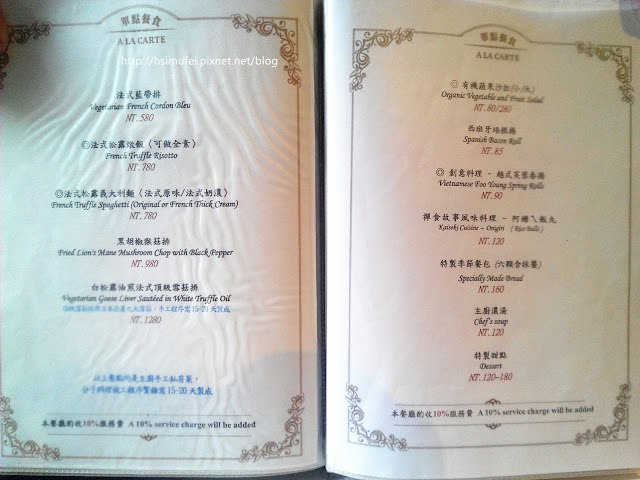 單點餐食
A LA CARTE
http://hsimufei.pixnet.net/blog
法式藍帶排
Vegetarian French Cordon Bleu
NT. 580
◎法式松露燉飯〈可做全素〉
French Truffle Risotto
NT. 780
◎法式松露義大利麵〈法式原味/法式奶濃〉
French Truffle Spaghetti (Original or French Thick Cream)
NT. 780
黑胡椒猴菇排
Fried Lion's Mane Mushroom Chop with Black Pepper
NT. 980
白松露油煎法式頂級雲菇排
Vegetarian Goose Liver Sautéed in White Truffle Oil
NT. 1280
以上餐點均是主廚手工私房菜，
分子料理做工程序繁雜需15-20天製成
本餐廳酌收10%服務費 A 10% service charge will be added
單點餐食
A LA CARTE
◎ 有機蔬果沙拉(小/大)
Organic Vegetable and Fruit Salad
NT. 80/280
西班牙培根捲
Spanish Bacon Roll
NT. 85
◎ 創意料理 - 越式芙蓉春捲
Vietnamese Foo Young Spring Rolls
NT. 90
禪食故事風味料理 - 阿嬤ㄟ飯丸
Kaiseki Cuisine – Onigiri (Rice Balls)
NT. 120
特製季節餐包 (六顆含抹醬)
Specially Made Bread
NT. 160
主廚濃湯
Chef's soup
NT. 120
特製甜點
Dessert
NT. 120~180
本餐廳酌收10%服務費 A 10% service charge will be added